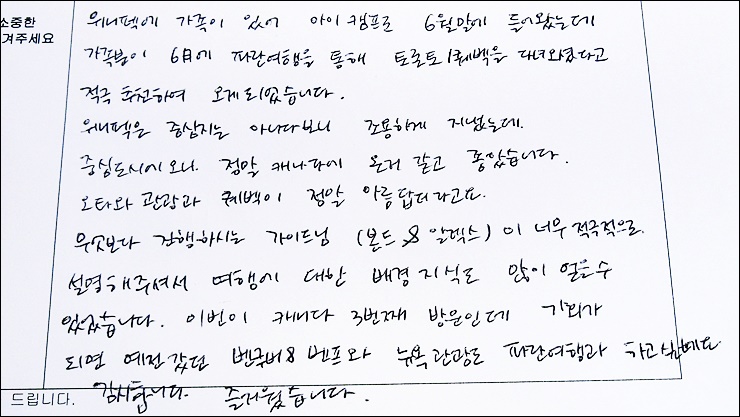 소중한
겨주세요
위니펙에 가족이 있어 아이캠프로 6월말에 들어왔는데
가족분이 6月에 파란여행을 통해 토론토/퀘벡을 다녀오셨다고
적극 추천하여 오게되었습니다.
위니펙은 중심지는 아니다보니 조용하게 지냈는데.
중심도시에오니 정말 캐나다에 온거 같고 좋았습니다.
오타와 관광과 퀘벡이 정말 아름답더라고요.
무엇보다 진행하시는 가이드님 (본드 & 알렉스) 이 너무 적극적으로
설명해주셔서 여행에 대한 배경지식도 많이 얻을수
있었습니다. 이번이 캐나다 3번째 방문인데 기회가
되면 예전 갔던 벤쿠버 & 벤프와 뉴욕관광도 파란여행과 하고싶네요
감사합니다. 즐거웠습니다.
드립니다.